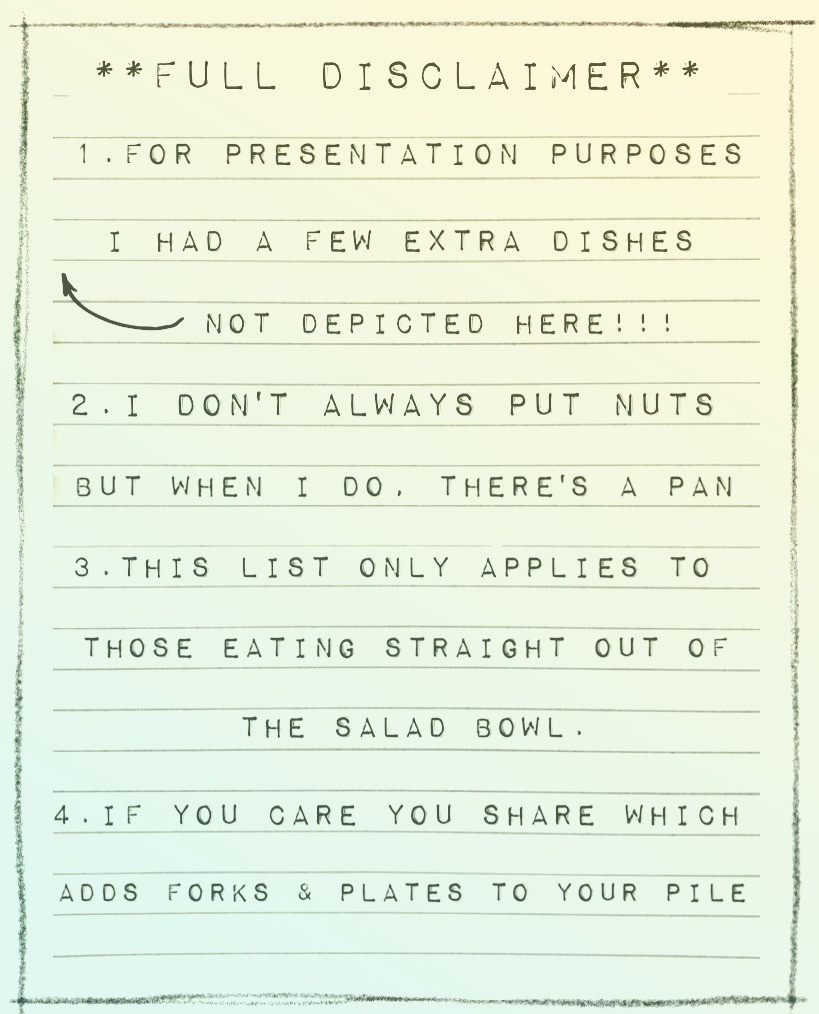 **FULL DISCLAIMER**
1.FOR PRESENTATION PURPOSES
I HAD A FEW EXTRA DISHES
NOT DEPICTED HERE!!!
2.I DON'T ALWAYS PUT NUTS
BUT WHEN I DO, THERE'S A PAN
3.THIS LIST ONLY APPLIES TO
THOSE EATING STRAIGHT OUT OF
THE SALAD BOWL.
4.IF YOU CARE YOU SHARE WHICH
ADDS FORKS & PLATES TO YOUR PILE